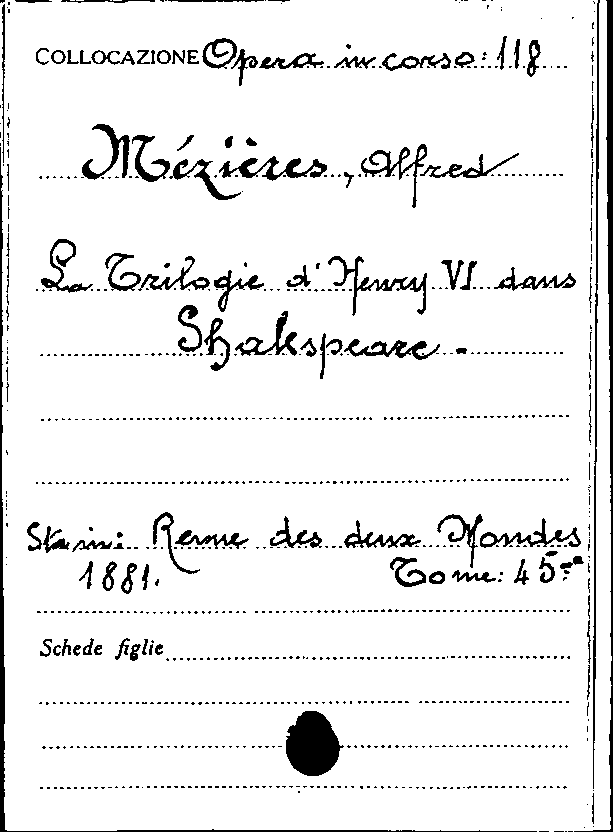 COLLOCAZIONE Opera in corso: 118
Mézières, Alfred
La Trilogie d'Henry VI dans
Shakspeare.
Sta in: Revue des deux Mondes
1881. Tome: 45
Schede figlie